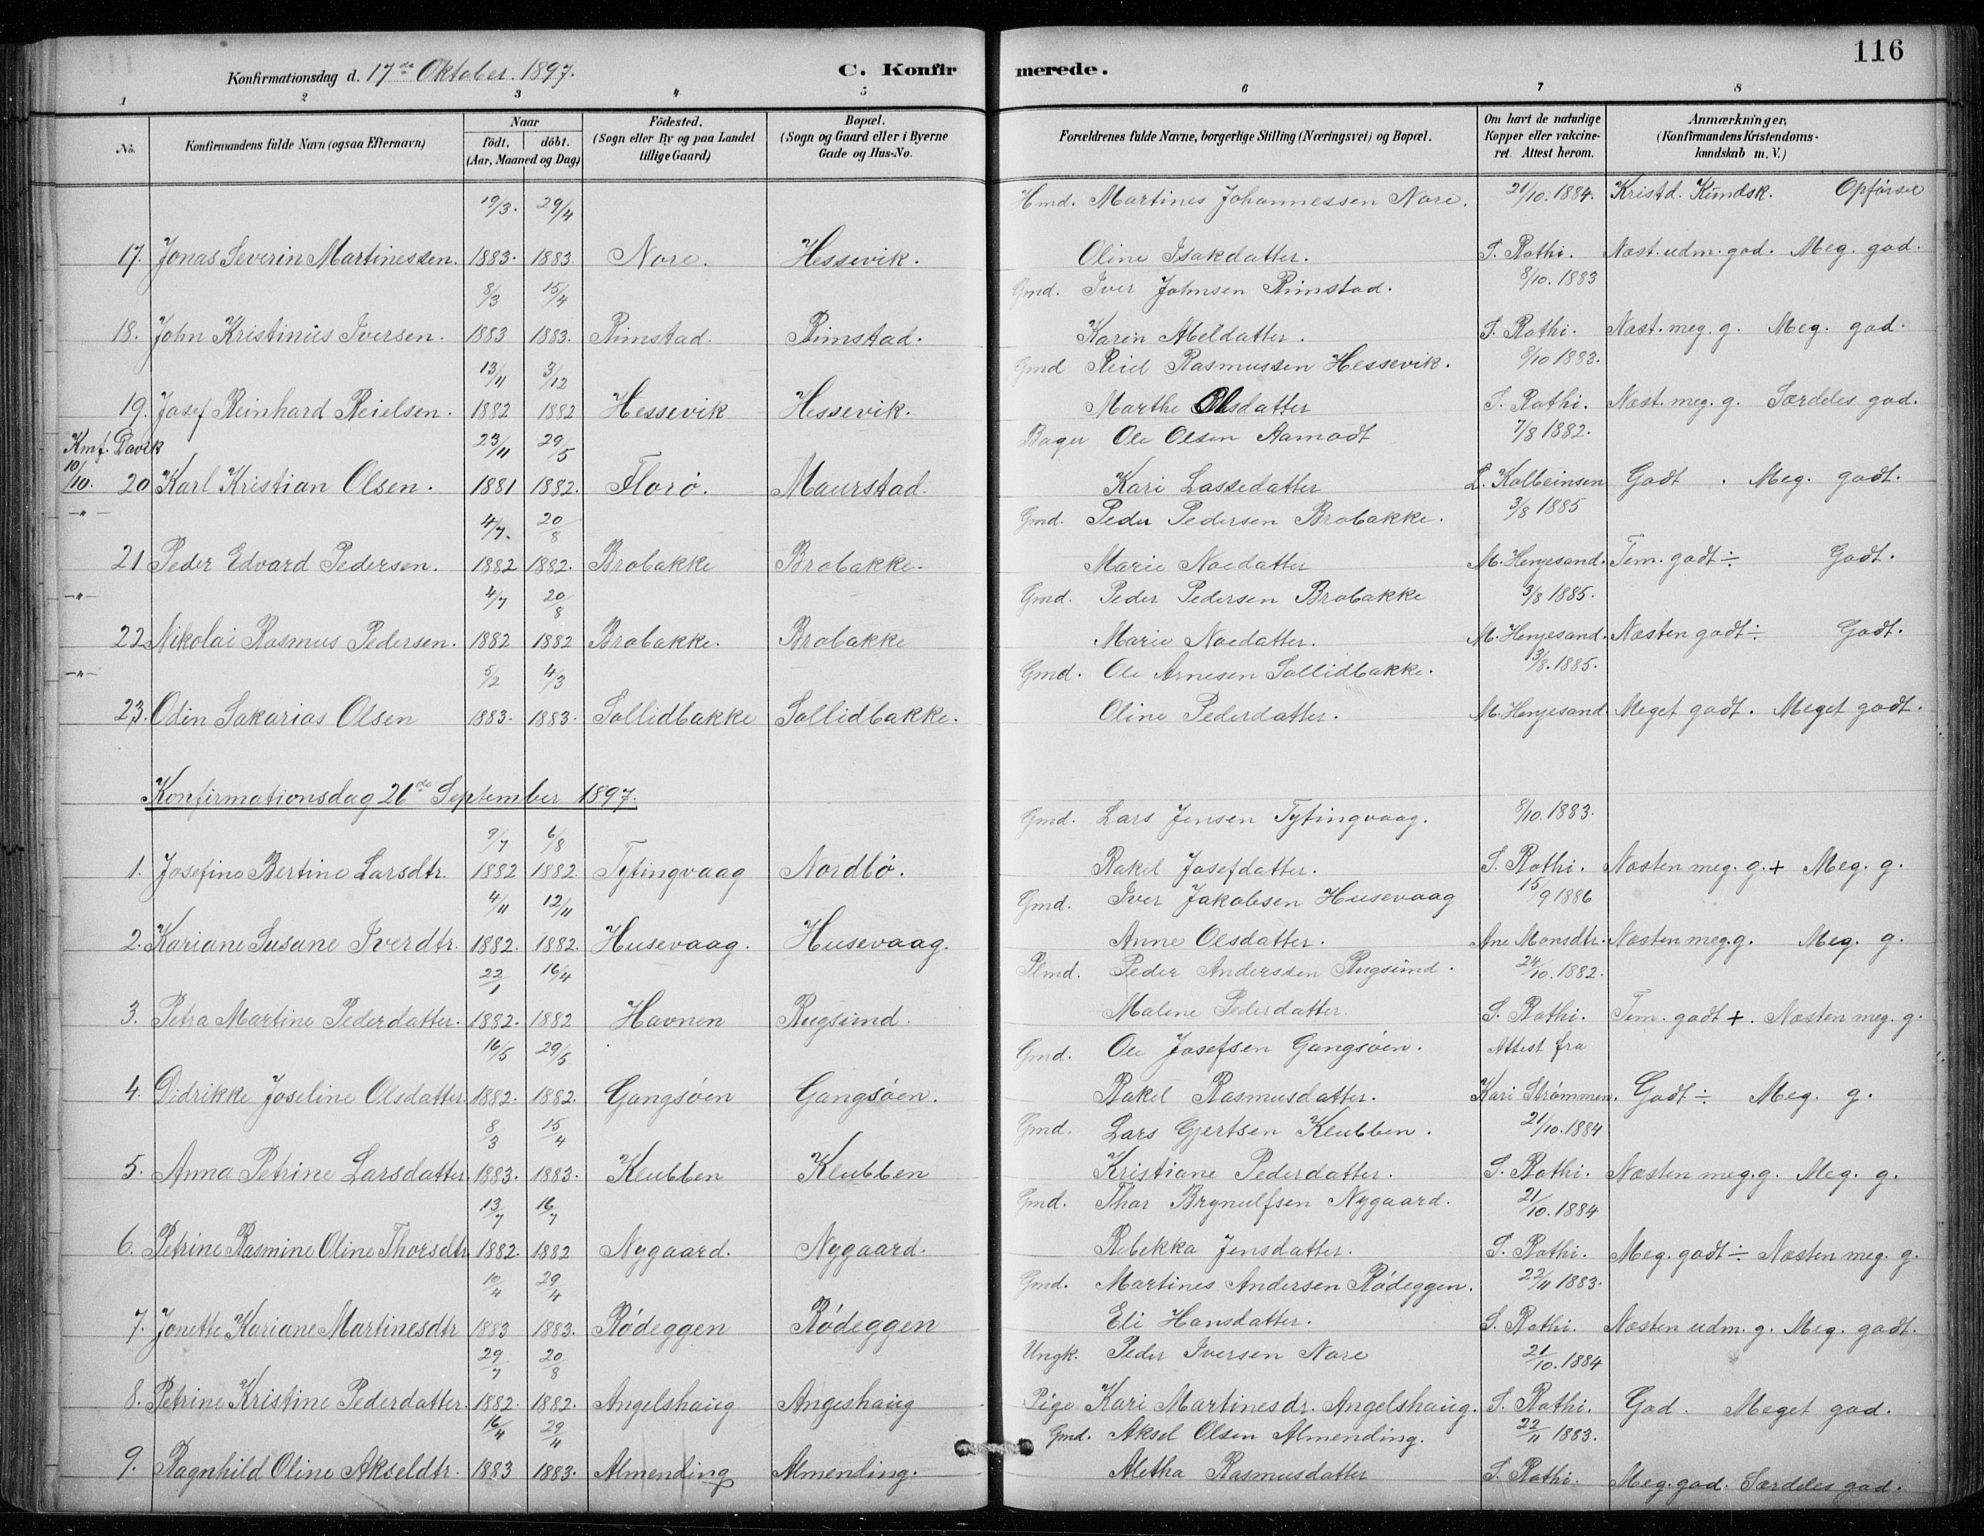 116
Konfirmationsdag d. 17de Oktober. 1897.
C. Konfirmerede.
1 2 3 4 5 6 7 8
No.
Konfirmandens fulde Navn (ogsaa Efternavn)
Naar
født. døbt.
(Aar, Maaned og Dag)
Fødested.
(Sogn eller By og paa Landet
tillige Gaard)
Bopæl.
(Sogn og Gaard eller i Byerne
Gade og Hus-No.
Forældrenes fulde Navne, borgerlige Stilling (Næringsvei) og Bopæl.
Om havt de naturlige
Kopper eller vakcine-
ret. Attest herom.
Anmærkninger,
(Konfirmandens Kristendoms-
kundskab m. V.)
19/3. 29/4 Hmd. Martines Johannessen Nore. 21/10. 1884. Kristd. Kundsk. Opførsel
17. Jonas Severin Martinessen. 1883. 1883 Nore. Hessevik. Oline Isakdatter. S. Rathi. Næst. udm. god. Meg. god.
8/3 15/4 Gmd. Iver Johnsen Rimstad. 8/10. 1883
18. John Kristinus Iversen. 1883 1883. Rimstad. Rimstad. Karen Abeldatter. S. Rathi. Næst. meg. g. Meg. god.
13/11 3/12 Gmd Reiel Rasmussen Hessevik. 8/10 1883.
19. Josef Reinhard Reielsen. 1882 1882 Hessevik Hessevik. Marthe Olsdatter S. Rathi. Næst. meg. g. Særdeles god.
Kmf. Davik 23/11 29/5 Bager Ole Olsen Aamodt 7/8 1882.
10/10. 20 Karl Kristian Olsen. 1881 1882. Florø. Maurstad. Kari Lassedatter L. Kolbeinsen Godt. Meg. godt.
-"- 4/7. 20/8 Gmd. Peder Pedersen Brobakke. 3/8 1885
21 Peder Edvard Pedersen. 1882 1882. Brobakke Brobakke. Marie Noedatter M. Henjesand. Tem. godt ÷ Godt.
-"- 4/7 20/8 Gmd. Peder Pedersen Brobakke 3/8 1885.
22 Nikolai Rasmus Pedersen. 1882 1882 Brobakke. Brobakke Marie Noedatter. M. Henjesand. Næsten godt ÷ Godt.
-"- 5/2 4/3 Gmd. Ole Arnesen Sollidbakke. 3/8. 1885.
23. Odin Sakarias Olsen 1883. 1883. Sollidbakke Sollidbakke. Oline Pederdatter. M. Henjesand. Meget godt. Meget godt.
Konfirmationsdag 26de September 1897.
9/7 6/8 Gmd. Lars Jensen Tytingvaag. 8/10. 1883.
1. Josefine Bertine Larsdtr. 1882 1882. Tytingvaag Nordbø. Rakel Josefdatter. S. Rathi. Næsten meg. g. + Meg. g.
4/11 12/11 Gmd. Iver Jakobsen Husevaag 15/9 1886
2. Kariane Susane Iverdtr. 1882. 1882. Husevaag. Husevaag. Anne Olsdatter. Ane Monsdtr. Næsten meg. g. Meg. g.
22/1 16/4 Plmd. Peder Andersen Rugsund. 24/10. 1882.
3. Petra Martine Pederdatter. 1882. 1882 Havnen Rugsund. Malene Pederdatter. S. Rathi. Tem. godt +. Næsten meg. g.
16/5 29/5 Gmd. Ole Josefsen Gangsøen. Attest fra
4. Didrikke Joseline Olsdatter. 1882. 1882. Gangsøen Gangsøen. Rakel Rasmusdatter. Kari Strømmen. Godt ÷ Meg. g.
8/3 15/4 Gmd. Lars Gjertsen Klubben. 21/10. 1884
5. Anna Petrine Larsdatter 1883. 1883. Klubben Klubben Kristiane Pederdatter. S. Rathi. Næsten meg. g. Meg. g.
13/7 16/7 Gmd. Thor Brynulfsen Nygaard. 21/10. 1884
6. Petrine Rasmine Oline Thorsdtr. 1882. 1882 Nygaard. Nygaard. Rebekka Jensdatter. S. Rathi. Meg. godt ÷ Næsten meg. g.
10/4 29/4 Gmd. Martines Andersen Rødeggen. 22/11 1883.
7. Jonette Kariane Martinesdtr 1883 1883. Rødeggen Rødeggen Eli Hansdatter. S. Rathi. Næsten udm. g. Meg. godt.
29/7 20/8 Ungk. Peder Iversen Nore 21/10. 1884
8. Petrine Kristine Pederdatter. 1882. 1882. Angelshaug Angeshaug Pige Kari Martinesdr. Angelshaug. S. Rathi. God. Meget god.
16/4 29/4 Gmd. Aksel Olsen Almending. 22/11 1883.
9. Ragnhild Oline Akseldtr. 1883 1883. Almending Almending. Aletha Rasmusdatter S. Rathi. Meg. god. Særdeles god.